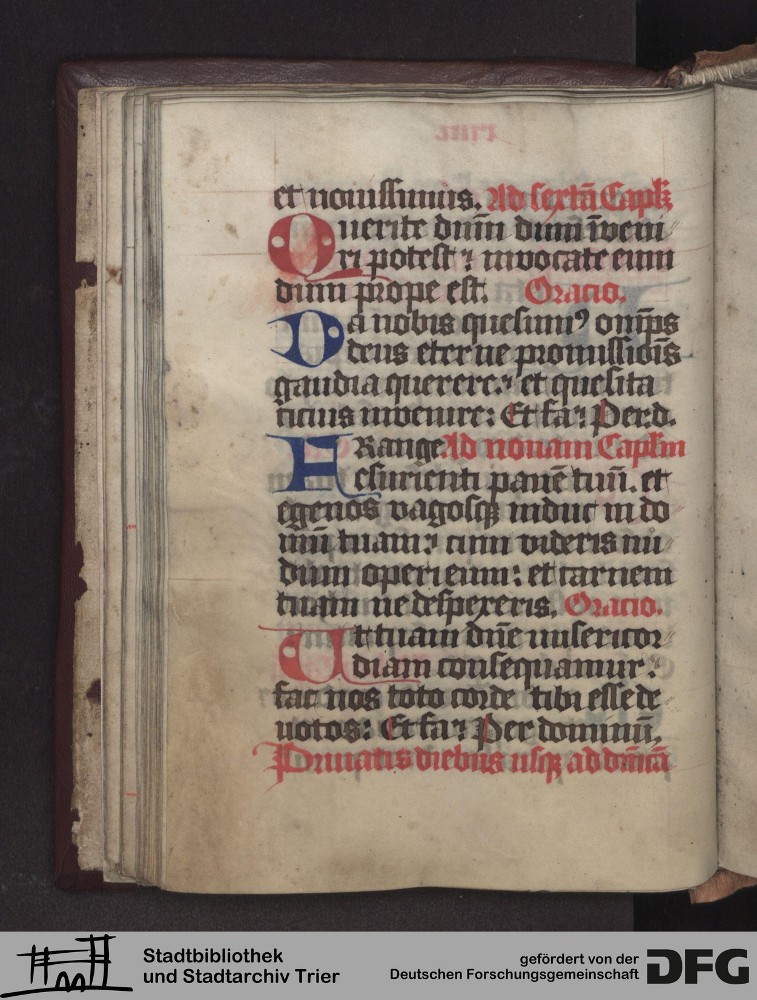 et nouissimis. Ad sextā Capłz
Querite dnm̄ dum īueni
ri potest ⁊ inuocate eum
dum prope est. Oracio.
Da nobis quesumꝰ om̄ps
deus eterne promissiōis
gaudia querere: et quesita
cicius inuenire: Et fa: Per.d.
FRange Ad nonam Capłm
esurienti panē tuū. et
egenos vagosqꝫ induc in do
mū tuam: cum videris nu
dum operi eum: et carnem
tuam ne despexeris. Oracio.
Ut tuam dn̄e misericor
diam consequamur:
fac nos toto corde tibi esse de
uotos: Et fa: Per dominū.
Priuatis diebus usqꝫ ad dnīcā
Stadtbibliothek
und Stadtarchiv Trier
gefördert von der
Deutschen Forschungsgemeinschaft
DFG